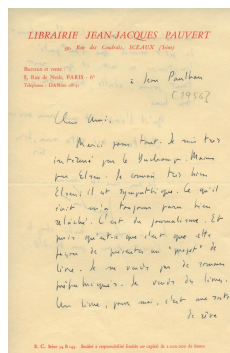 LIBRAIRIE JEAN-JACQUES PAUVERT
Rue des Coudrais, SCEAUX (Seine)
Bureaux et vente :
8, Rue de Nesle, PARIS - 6e
Téléphone : DANton
à Jean Paulhan
[1956]
Cher Ami,
Merci pour tout. Je suis très
intéressé par le Duchamp. Moins
par Elzen. Je connais très bien
est sympathique. Ce qu'il
écrit m'a toujours paru bien
relâché. C'est du journalisme. Et
puis qu'est-ce que c'est que cette
façon de présenter un "projet" de
livre. Je ne vends pas de
Je vends des livres.
Un livre, pour moi, c'est une sorte
de rêve
R. C. Seine Société à responsabilité limitée au capital de francs